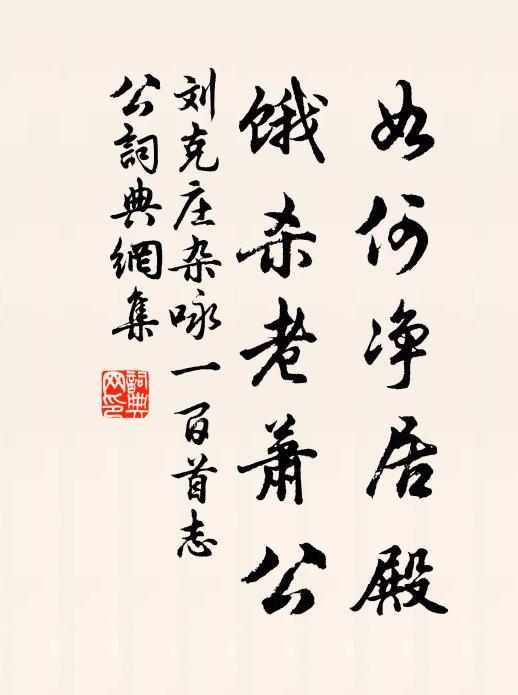 如何净居殿
饿杀老萧公
刘克庄杂咏一百首志
公词典网集
词典
网印